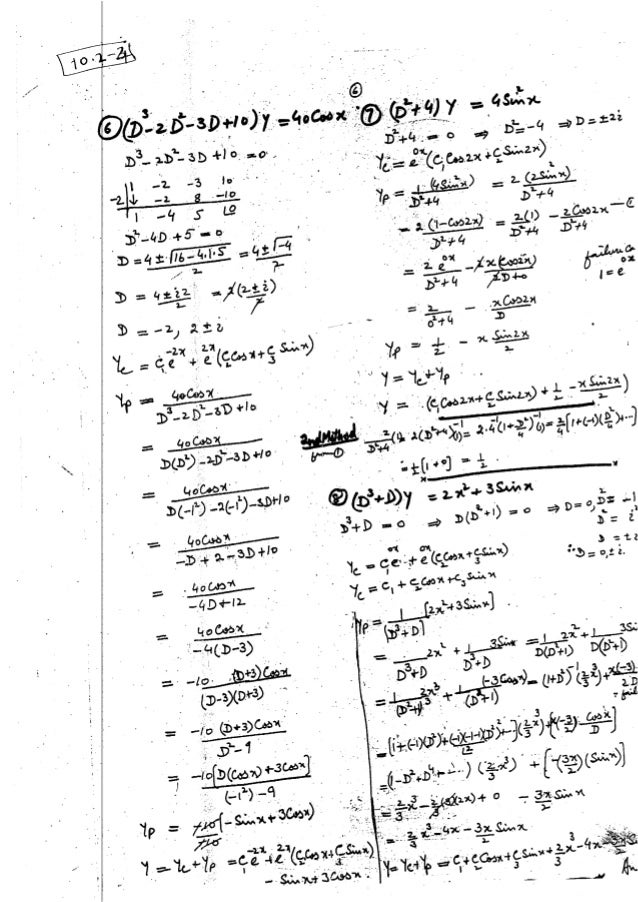 10.2-24
⑥ (D³-2D²-3D+10)y = 40Cosx
D³-2D²-3D+10=0
1 -2 -3 10
-2 ↓ -2 8 -10
1 -4 5 0
D²-4D+5=0
D = 4±√16-4.1.5 / 2 = 4±√-4 / 2
D = 4±i2 / 2 = 2(2±i) / 2
D = -2, 2±i
Yc = C₁e^-2x + e^2x (C₂Cosx + C₃Sinx)
Yp = 40Cosx / D³-2D²-3D+10
= 40Cosx / D(D²)-2D²-3D+10
= 40Cosx / D(-1²)-2(-1²)-3D+10
= 40Cosx / -D+2-3D+10
= 40Cosx / -4D+12
= 40Cosx / -4(D-3)
= -10 (D+3)Cosx / (D-3)(D+3)
= -10 (D+3)Cosx / D²-9
= -10[D(Cosx)+3Cosx] / (-1²)-9
Yp = +10 / +10 (-Sinx+3Cosx)
Y = Yc+Yp = C₁e^-2x + e^2x (C₂Cosx + C₃Sinx)
- Sinx + 3Cosx.
⑥
⑦ (D²+4)y = 4Sin²x
D²+4 = 0 ⇒ D²=-4 ⇒ D=±2i
Yc = e^0x (C₁Cos2x + C₂Sin2x)
Yp = 1 / D²+4 (4Sin²x) = 2 (2Sin²x) / D²+4
= 2 (1-Cos2x) / D²+4 = 2(1) / D²+4 - 2Cos2x / D²+4
= 2e^0x / D²+4 - 2x(Cos2x) / 2D+0
1 = e^0x
= 2 / 0²+4 - xCos2x / D
Yp = 1/2 - x Sin2x / 2
Y = Yc+Yp
Y = (C₁Cos2x + C₂Sin2x) + 1/2 - xSin2x / 2
2nd Method
from ①
2 / D²+4 (1) = 2(D²+4)^-1 (1) = 2.4^-1 (1+D²/4)^-1 (1) = 2/4 [1+(-1)(D²/4)+...]
= 1/2 [1+0] = 1/2
⑧ (D³+D)y = 2x²+3Sinx
D³+D = 0 ⇒ D(D²+1) = 0 ⇒ D=0, D²=-1
D² = i²
D = ±i
∴D = 0, ±i.
Yc = C₁e^0x + e^0x (C₂Cosx + C₃Sinx)
Yc = C₁ + C₂Cosx + C₃Sinx
Yp = 1 / [D³+D] [2x²+3Sinx]
= 1 / D³+D 2x² + 1 / D³+D 3Sinx = 1 / D(D²+1) 2x² + 1 / D(D²+1) 3Si
= 1 / (D²+1) 2x³/3 + 1 / (D²+1) (-3Cosx) = (1+D²)^-1 (2/3 x³) + x(-3) / 2D
= [1+(-1)(D²)+(-1)(-1-1)(D²)²/2+-](2/3 x³) + x(-3/2) Cosx / D
= (1-D²+D⁴-...) (2/3 x³) + [-(3x/2)(Sinx)]
= 2/3 x³ - 2/3 (3)(2x) + 0 - 3x/2 Sinx
= 2/3 x³ - 4x - 3x/2 Sinx
Y = Yc+Yp = C₁ + C₂Cosx + C₃Sinx + 2/3 x³ - 4x - 3x Sin
An